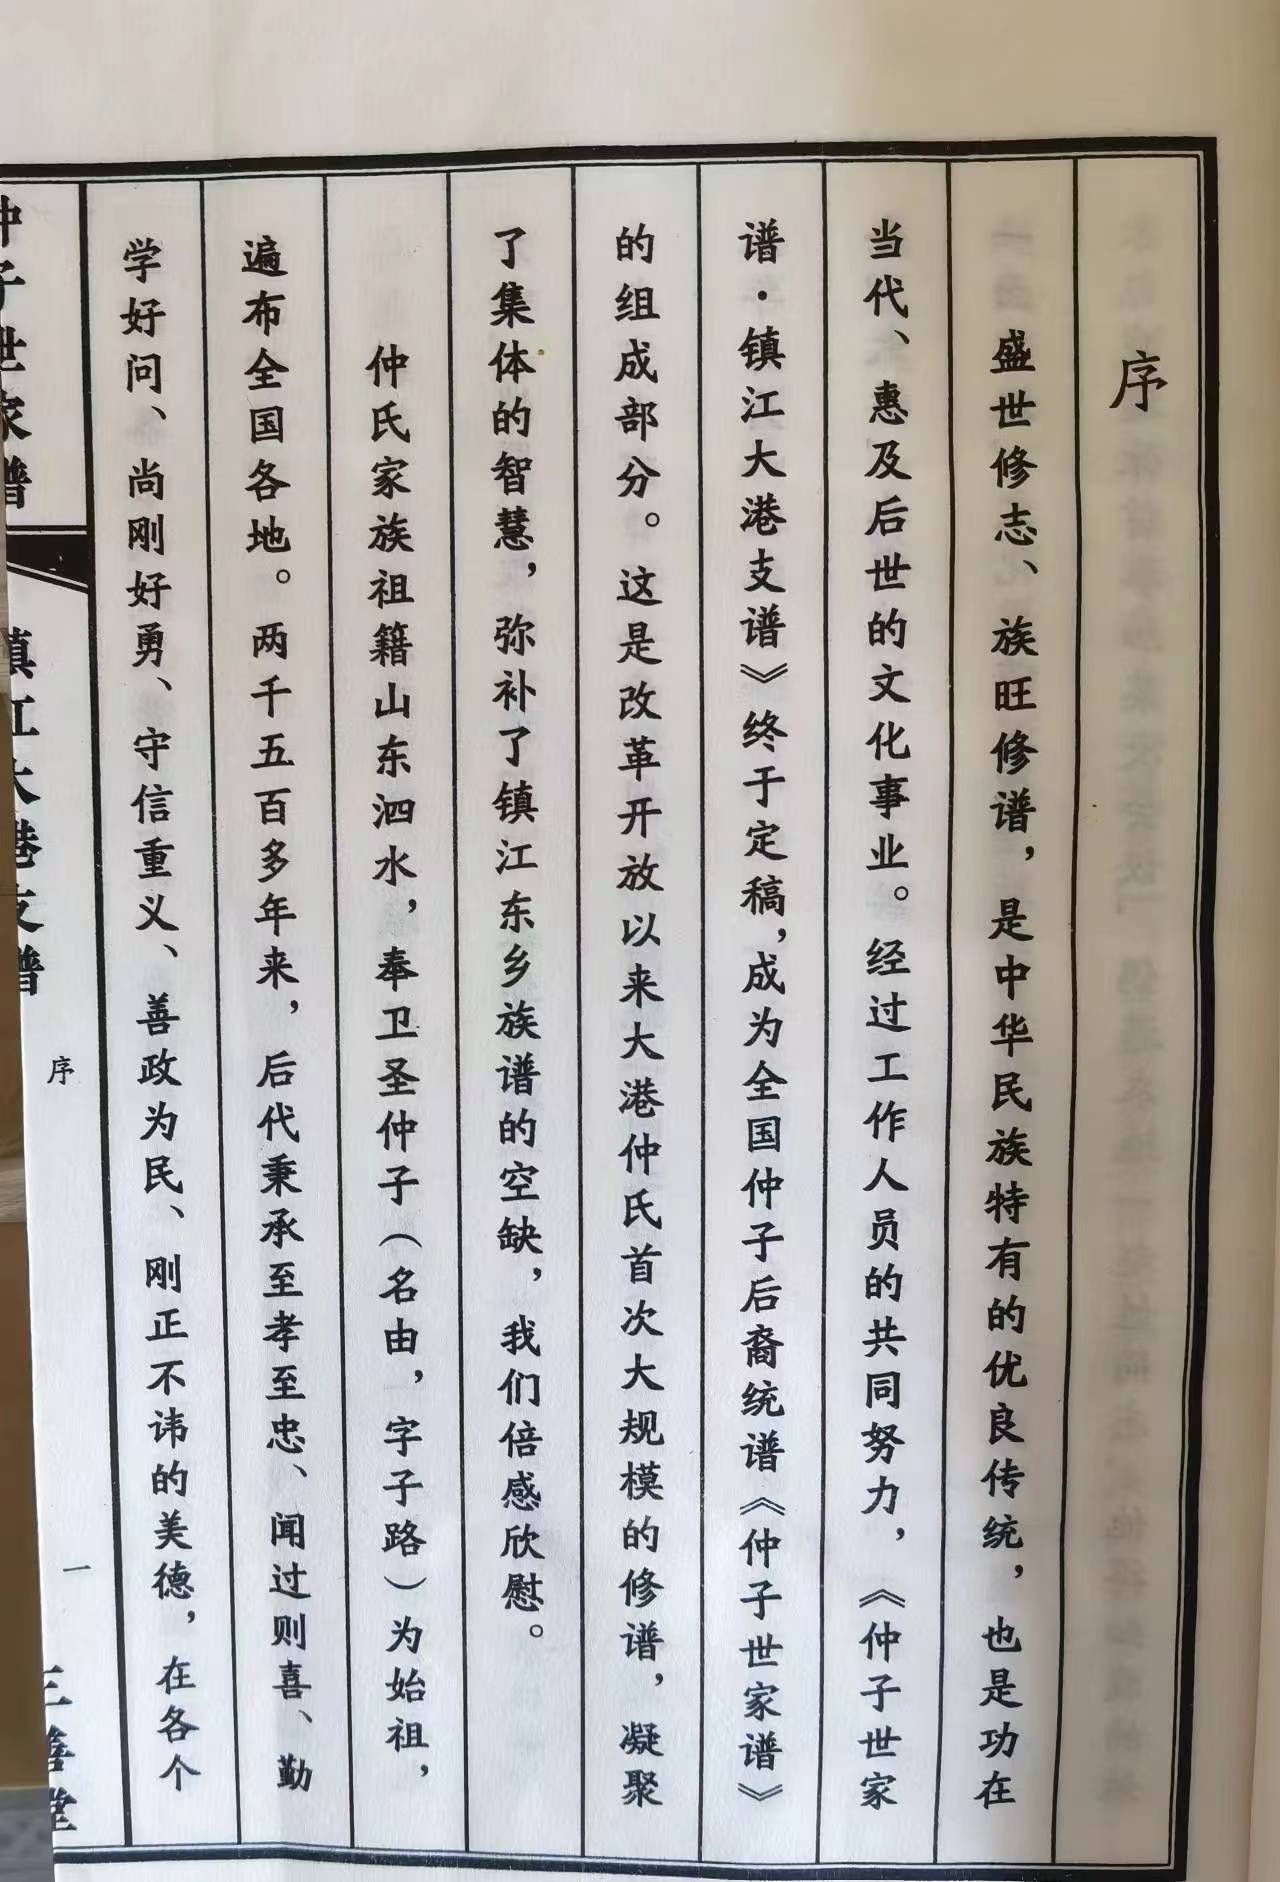 序
盛世修志、族旺修谱，是中华民族特有的优良传统，也是功在
当代、惠及后世的文化事业。经过工作人员的共同努力，《仲子世家
谱·镇江大港支谱》终于定稿，成为全国仲子后裔统谱《仲子世家谱》
的组成部分。这是改革开放以来大港仲氏首次大规模的修谱，凝聚
了集体的智慧，弥补了镇江东乡族谱的空缺，我们倍感欣慰。
仲氏家族祖籍山东泗水，奉卫圣仲子（名由，字子路）为始祖，
遍布全国各地。两千五百多年来，后代秉承至孝至忠、闻过则喜、勤
学好问、尚刚好勇、守信重义、善政为民、刚正不讳的美德，在各个
仲子世家谱
镇江大港支谱
序
一
三善堂